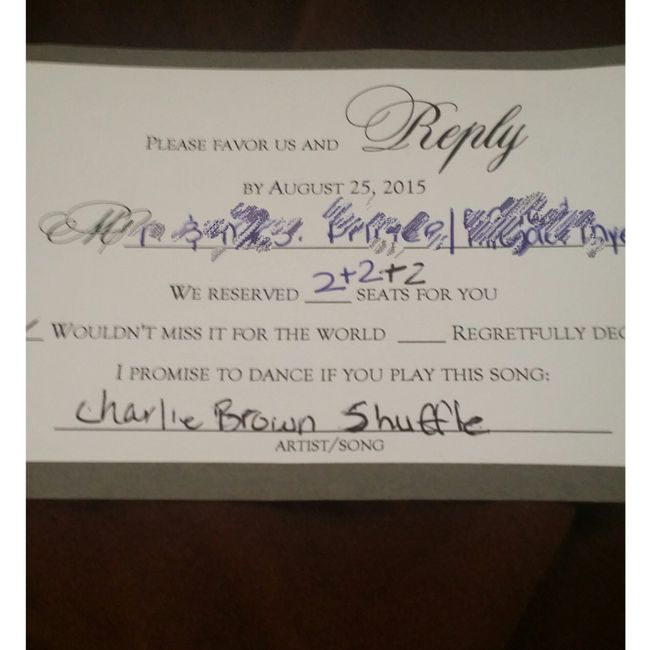 Please favor us and Reply
by August 25, 2015
M
We reserved 2+2+2 seats for you
Wouldn't miss it for the world ____ Regretfully dec
I promise to dance if you play this song:
Charlie Brown Shuffle
artist/song